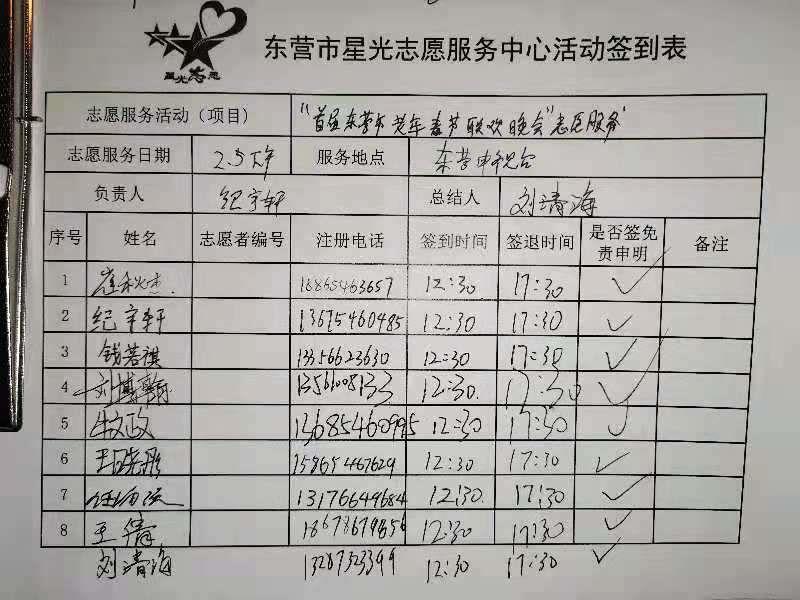 星光志愿
东营市星光志愿服务中心活动签到表
志愿服务活动（项目） "首届东营市老年春节联欢晚会"志愿服务
志愿服务日期 2.5 服务地点 东营电视台
负责人 纪宇轩 总结人 刘清海
序号 姓名 志愿者编号 注册电话 签到时间 签退时间 是否签免责申明 备注
1 崔秋杰 18865463657 12:30 17:30 ✓
2 纪宇轩 13675460485 12:30 17:30 ✓
3 钱若祺 13356623630 12:30 17:30 ✓
4 刘博翰 13561008133 12:30 17:30 ✓
5 牛政 13685460995 12:30 17:30 ✓
6 15865467629 12:30 17:30 ✓
7 13176649684 12:30 17:30 ✓
8 王倩 12:30 17:30 ✓
刘清海 12:30 17:30 ✓